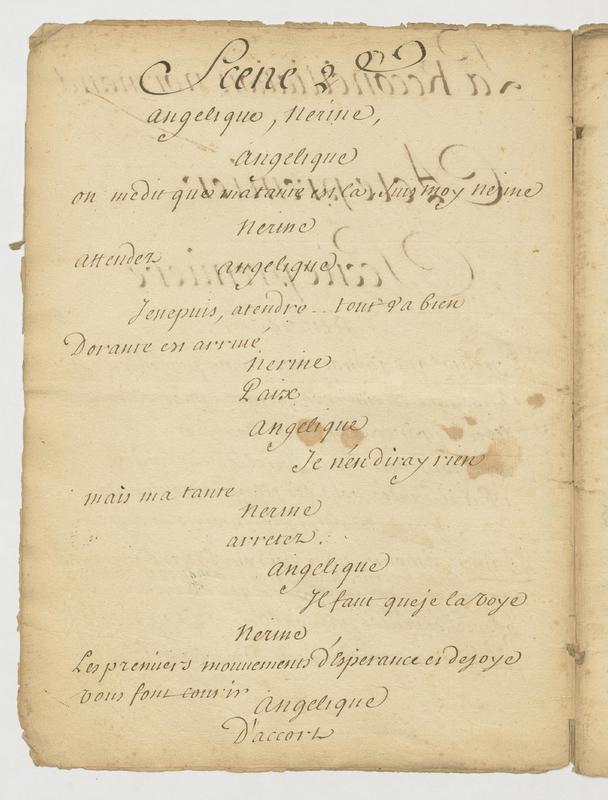 Scene 2
angelique, Nerine,
Angelique
on medit que matante est la, suis moy nerine
Nerine
attendez
angelique
Jenepuis, atendre .. tout va bien
Dorante est arrivé
Nerine
Paix
Angelique
Je n'en diray rien
mais ma tante
Nerine
arretez.
Angelique
Il faut queje la voye
Nerine
Les premiers mouvements d'Esperance et dejoye
vous font courir
Angelique
D'accort